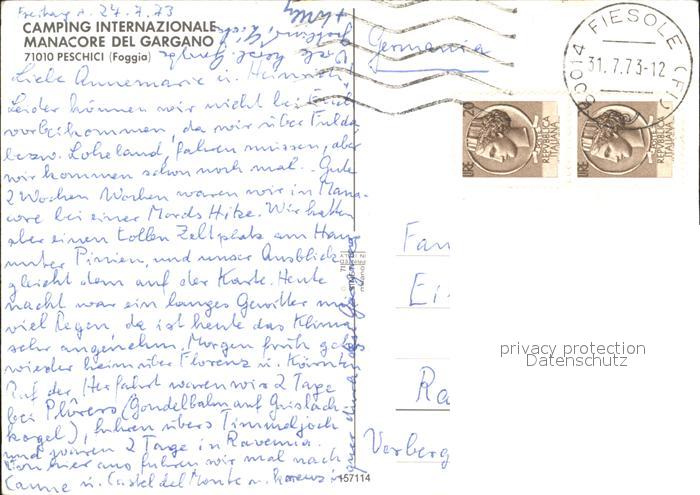 Freitag d. 27.7.73
CAMPING INTERNAZIONALE
MANACORE DEL GARGANO
71010 PESCHICI (Foggia)
Liebe Annemarie u. Heinrich!
Leider können wir nicht bei Euch
vorbeikommen, da wir über Fulda
bezw. Loheland, fahren müssen, aber
wir kommen schon noch mal. Gute
2 Wochen Wochen waren wir in Mana-
core bei einer Mords Hitze. Wir hatten
aber einen tollen Zeltplatz am Hang
unter Pinien, und unser Ausblick
gleicht dem auf der Karte. Heute
nacht war ein langes Gewitter mit
viel Regen, da ist heute das Klima
sehr angenehm. Morgen früh gehts
wieder heim über Florenz u. Kärnten
Auf der Herfahrt waren wir 2 Tage
bei (Gondelbahn auf
kogel), fuhren übers Timmelsjoch
und waren 2 Tage in Ravenna.
Von hier aus fuhren wir mal nach
Canne u. Castel del Monte u.
quer durch den Gargano
Germania
50014 FIESOLE (FI)
31.7.73-12
LIRE 20
REPUBBLICA ITALIANA
LIRE 20
REPUBBLICA ITALIANA
Fam
Ei
Ra
Vorberg
privacy protection
Datenschutz
157114